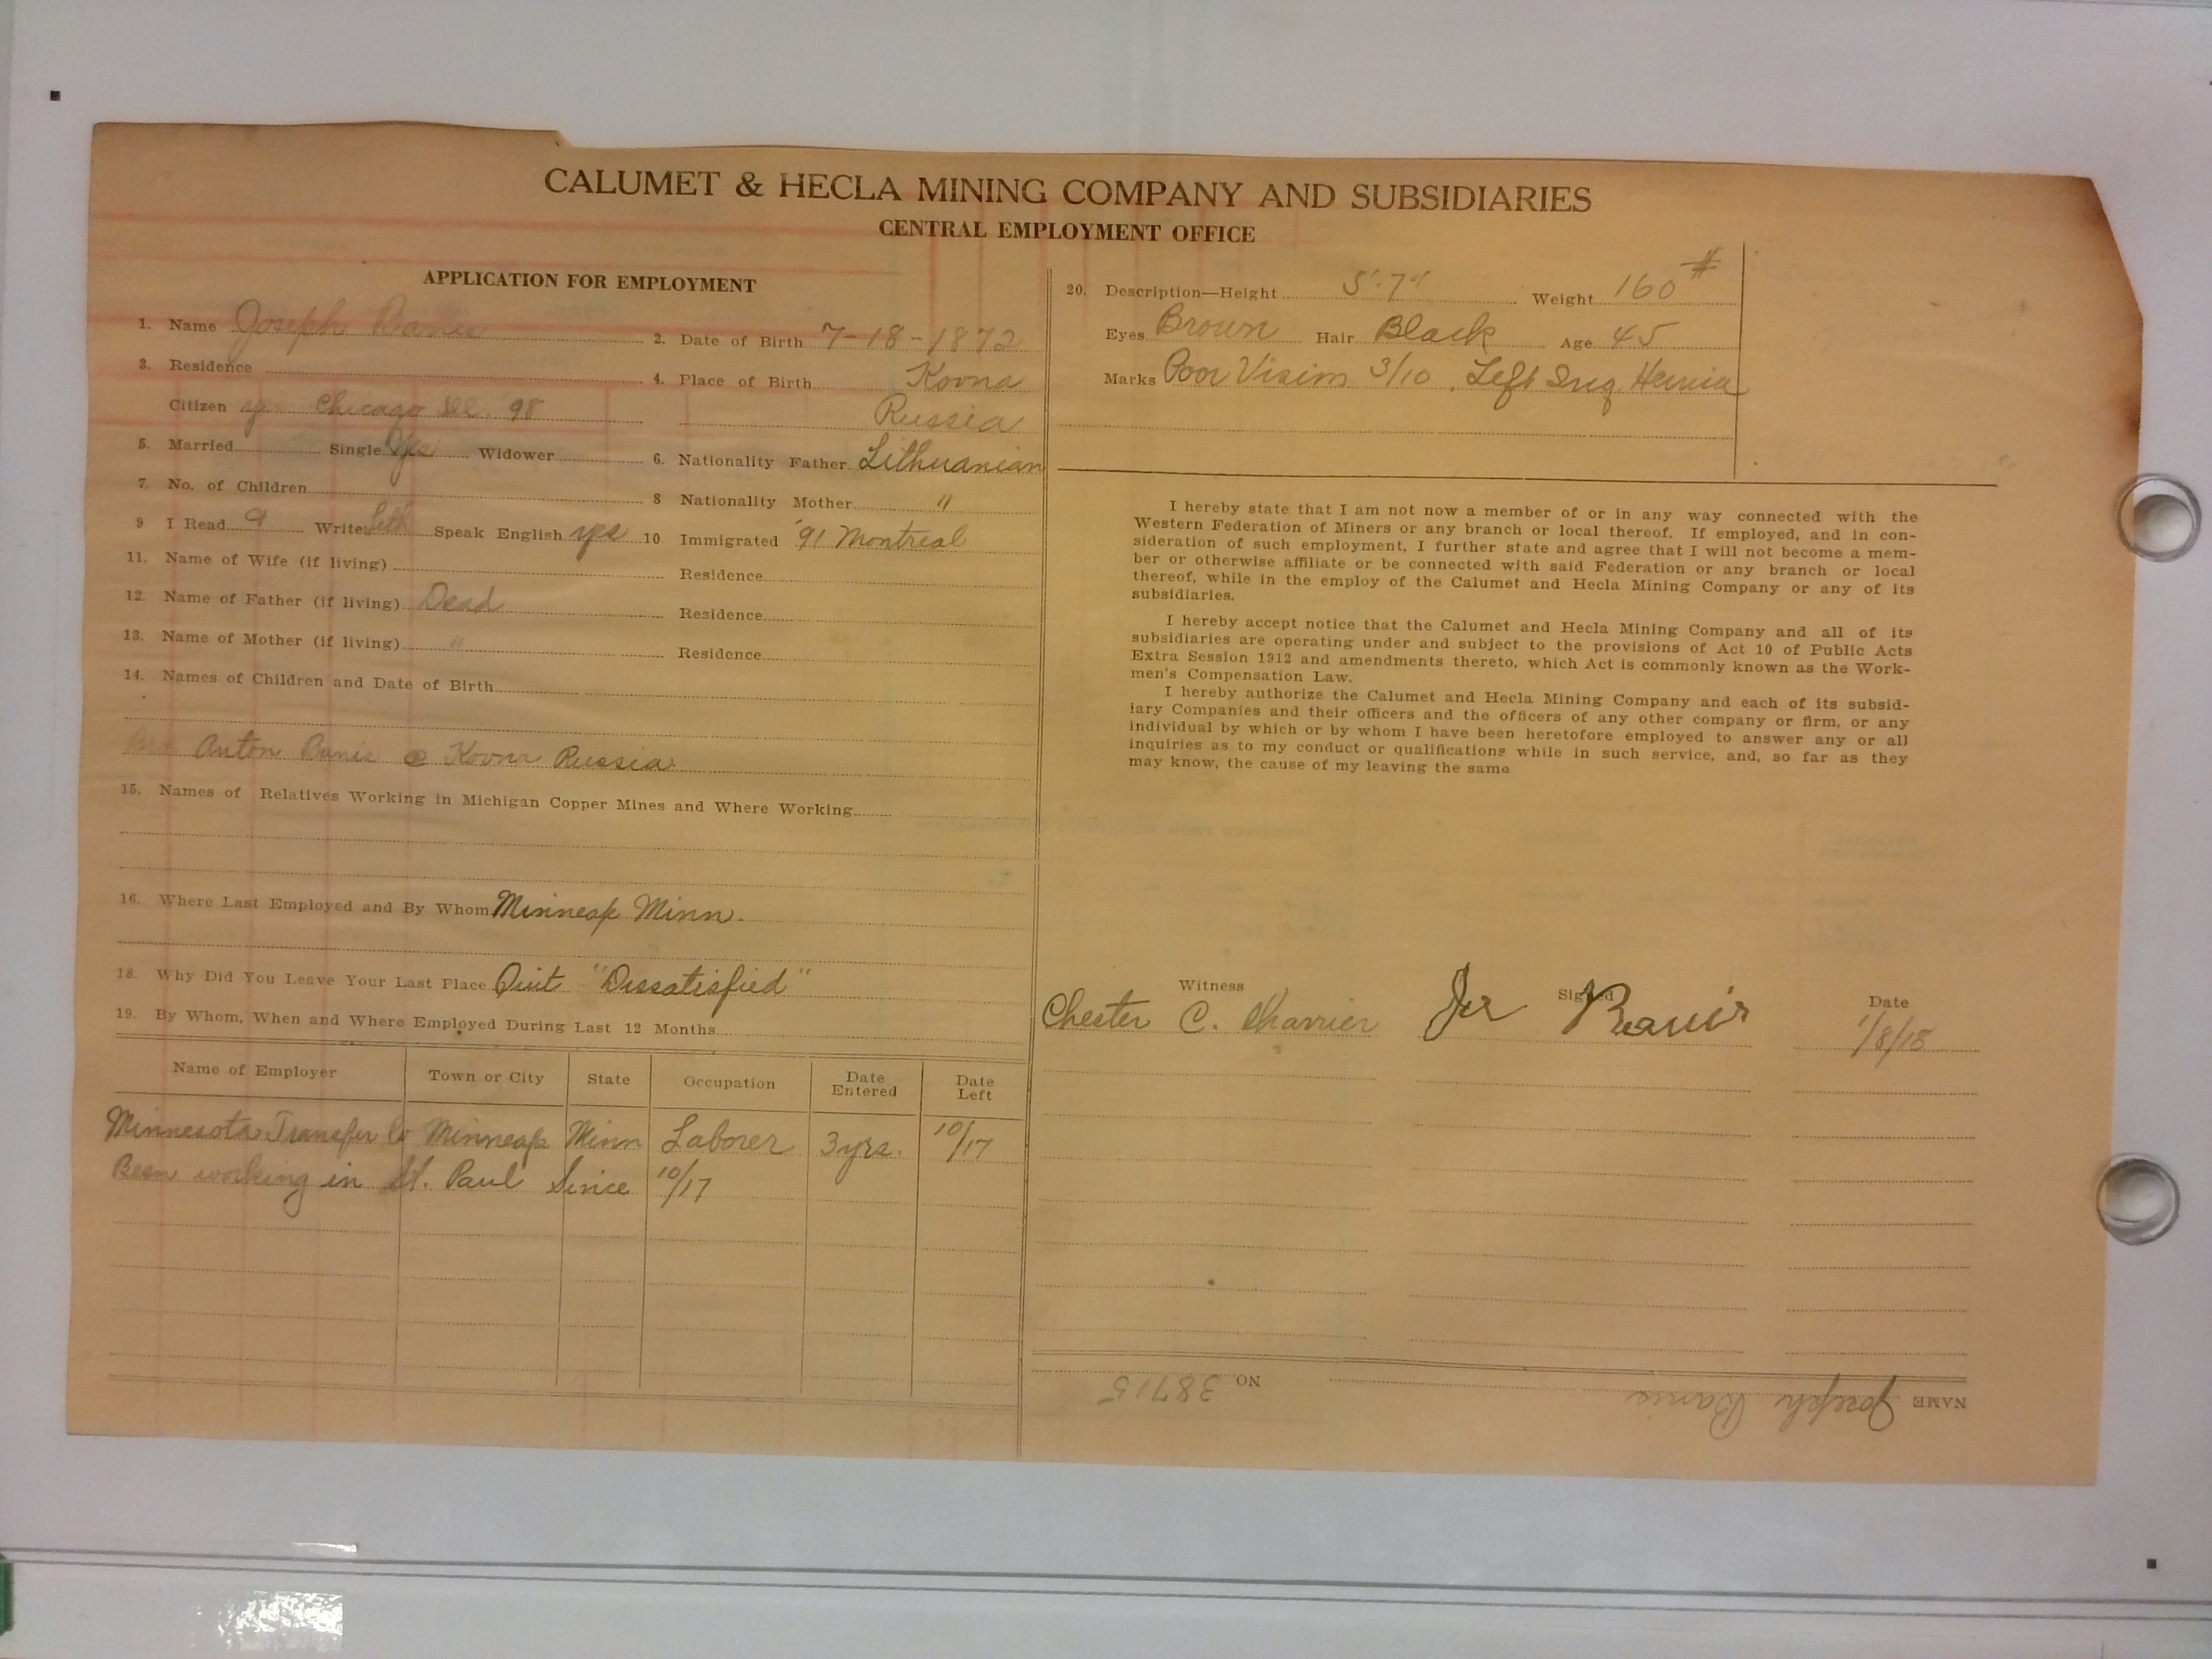 CALUMET & HECLA MINING COMPANY AND SUBSIDIARIES
CENTRAL EMPLOYMENT OFFICE
APPLICATION FOR EMPLOYMENT
1. Name Joseph Banis 2. Date of Birth 7-18-1872
3. Residence 4. Place of Birth Kovna
Citizen yes Chicago Ill. '98 Russia
5. Married Single Yes Widower 6. Nationality Father Lithuanian
7. No. of Children 8 Nationality Mother "
9 I Read Write Lith Speak English yes 10 Immigrated '91 Montreal
11. Name of Wife (if living) Residence
12. Name of Father (if living) Dead Residence
13. Name of Mother (if living) " Residence
14. Names of Children and Date of Birth
Bro Anton Banis @ Kovna Russia
15. Names of Relatives Working in Michigan Copper Mines and Where Working
16. Where Last Employed and By Whom Minneap Minn.
18. Why Did You Leave Your Last Place Quit "Dissatisfied"
19. By Whom, When and Where Employed During Last 12 Months
Name of Employer Town or City State Occupation Date Entered Date Left
Minnesota Transfer Co Minneap Minn Laborer 3 yrs. 10/17
Been working in St. Paul Since 10/17
20. Description—Height 5'-7" Weight 160 #
Eyes Brown Hair Black Age 45
Marks Poor Vision 3/10. Left Ing. Hernia
I hereby state that I am not now a member of or in any way connected with the
Western Federation of Miners or any branch or local thereof. If employed, and in con-
sideration of such employment, I further state and agree that I will not become a mem-
ber or otherwise affiliate or be connected with said Federation or any branch or local
thereof, while in the employ of the Calumet and Hecla Mining Company or any of its
subsidiaries.
I hereby accept notice that the Calumet and Hecla Mining Company and all of its
subsidiaries are operating under and subject to the provisions of Act 10 of Public Acts
Extra Session 1912 and amendments thereto, which Act is commonly known as the Work-
men's Compensation Law.
I hereby authorize the Calumet and Hecla Mining Company and each of its subsid-
iary Companies and their officers and the officers of any other company or firm, or any
individual by which or by whom I have been heretofore employed to answer any or all
inquiries as to my conduct or qualifications while in such service, and, so far as they
may know, the cause of my leaving the same
Witness Signed Date
Chester C. Charrier Banis 1/8/18
NAME Joseph Banis NO 38715